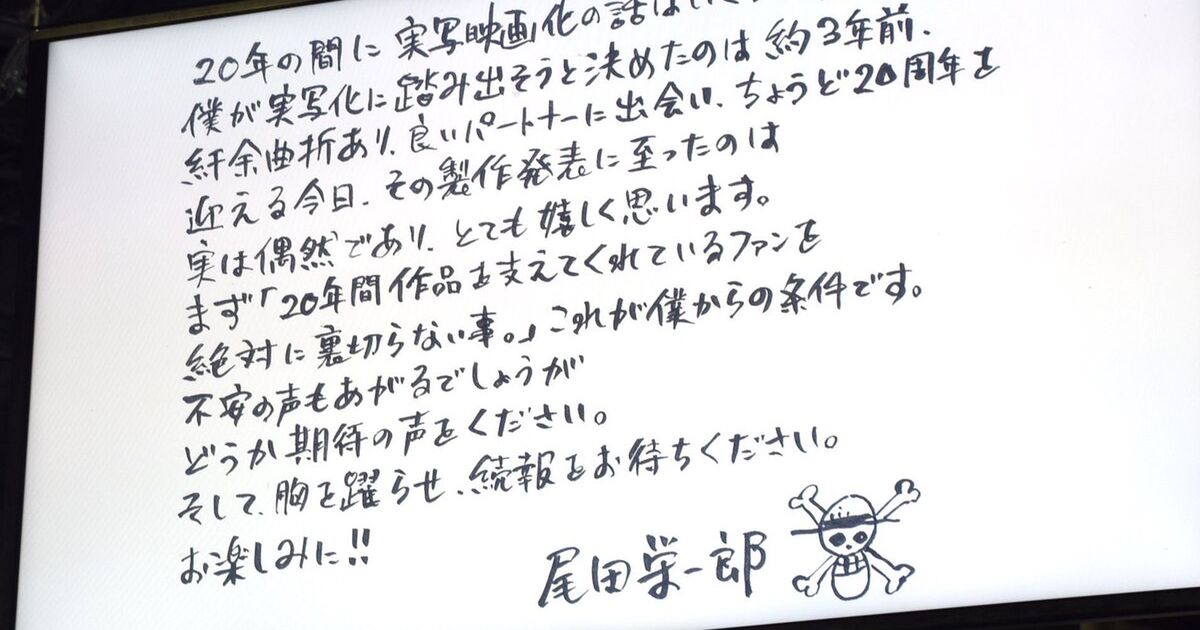 20年の間に実写映画化の話は
僕が実写化に踏み出そうと決めたのは約3年前、
紆余曲折あり、良いパートナーに出会い、ちょうど20周年を
迎える今日、その製作発表に至ったのは
実は偶然であり、とても嬉しく思います。
まず「20年間作品を支えてくれているファンを
絶対に裏切らない事。」これが僕からの条件です。
不安の声もあがるでしょうが
どうか期待の声をください。
そして、胸を躍らせ、続報をお待ちください。
お楽しみに!!
尾田栄一郎